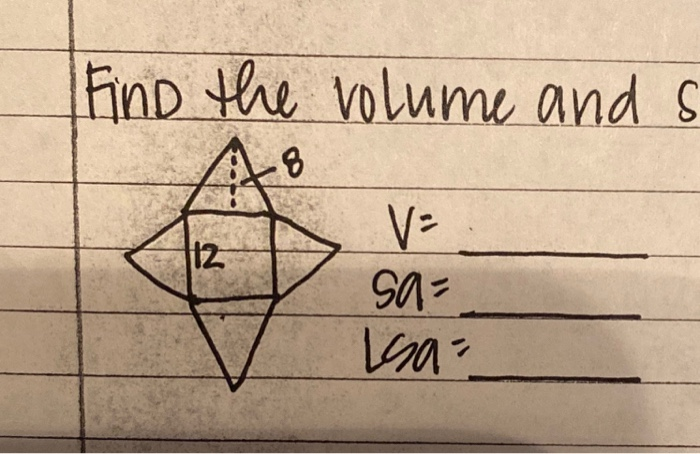 Find the volume and s
8
12
V=
Sa=
LSa=